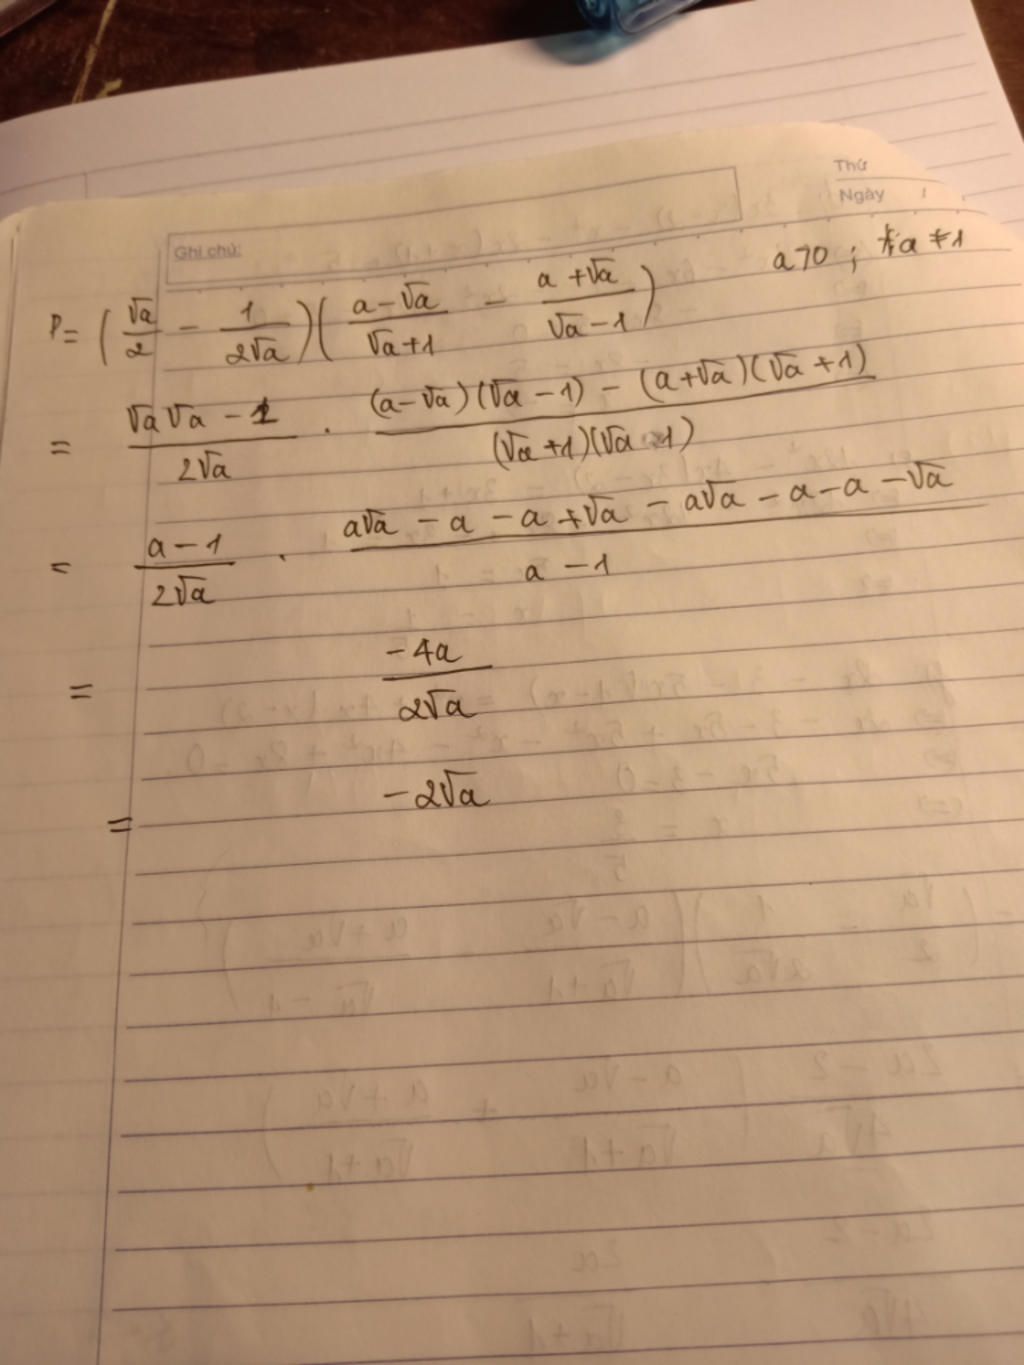 Thứ
Ngày
Ghi chú:
a>0 ; a ≠ 1
P = (√a/2 − 1/(2√a)) ((a−√a)/(√a+1) − (a+√a)/(√a−1))
= (√a√a − 1)/(2√a) · ((a−√a)(√a−1) − (a+√a)(√a+1))/((√a+1)(√a−1))
= (a−1)/(2√a) · (a√a − a − a + √a − a√a − a − a − √a)/(a − 1)
= −4a/(2√a)
= −2√a